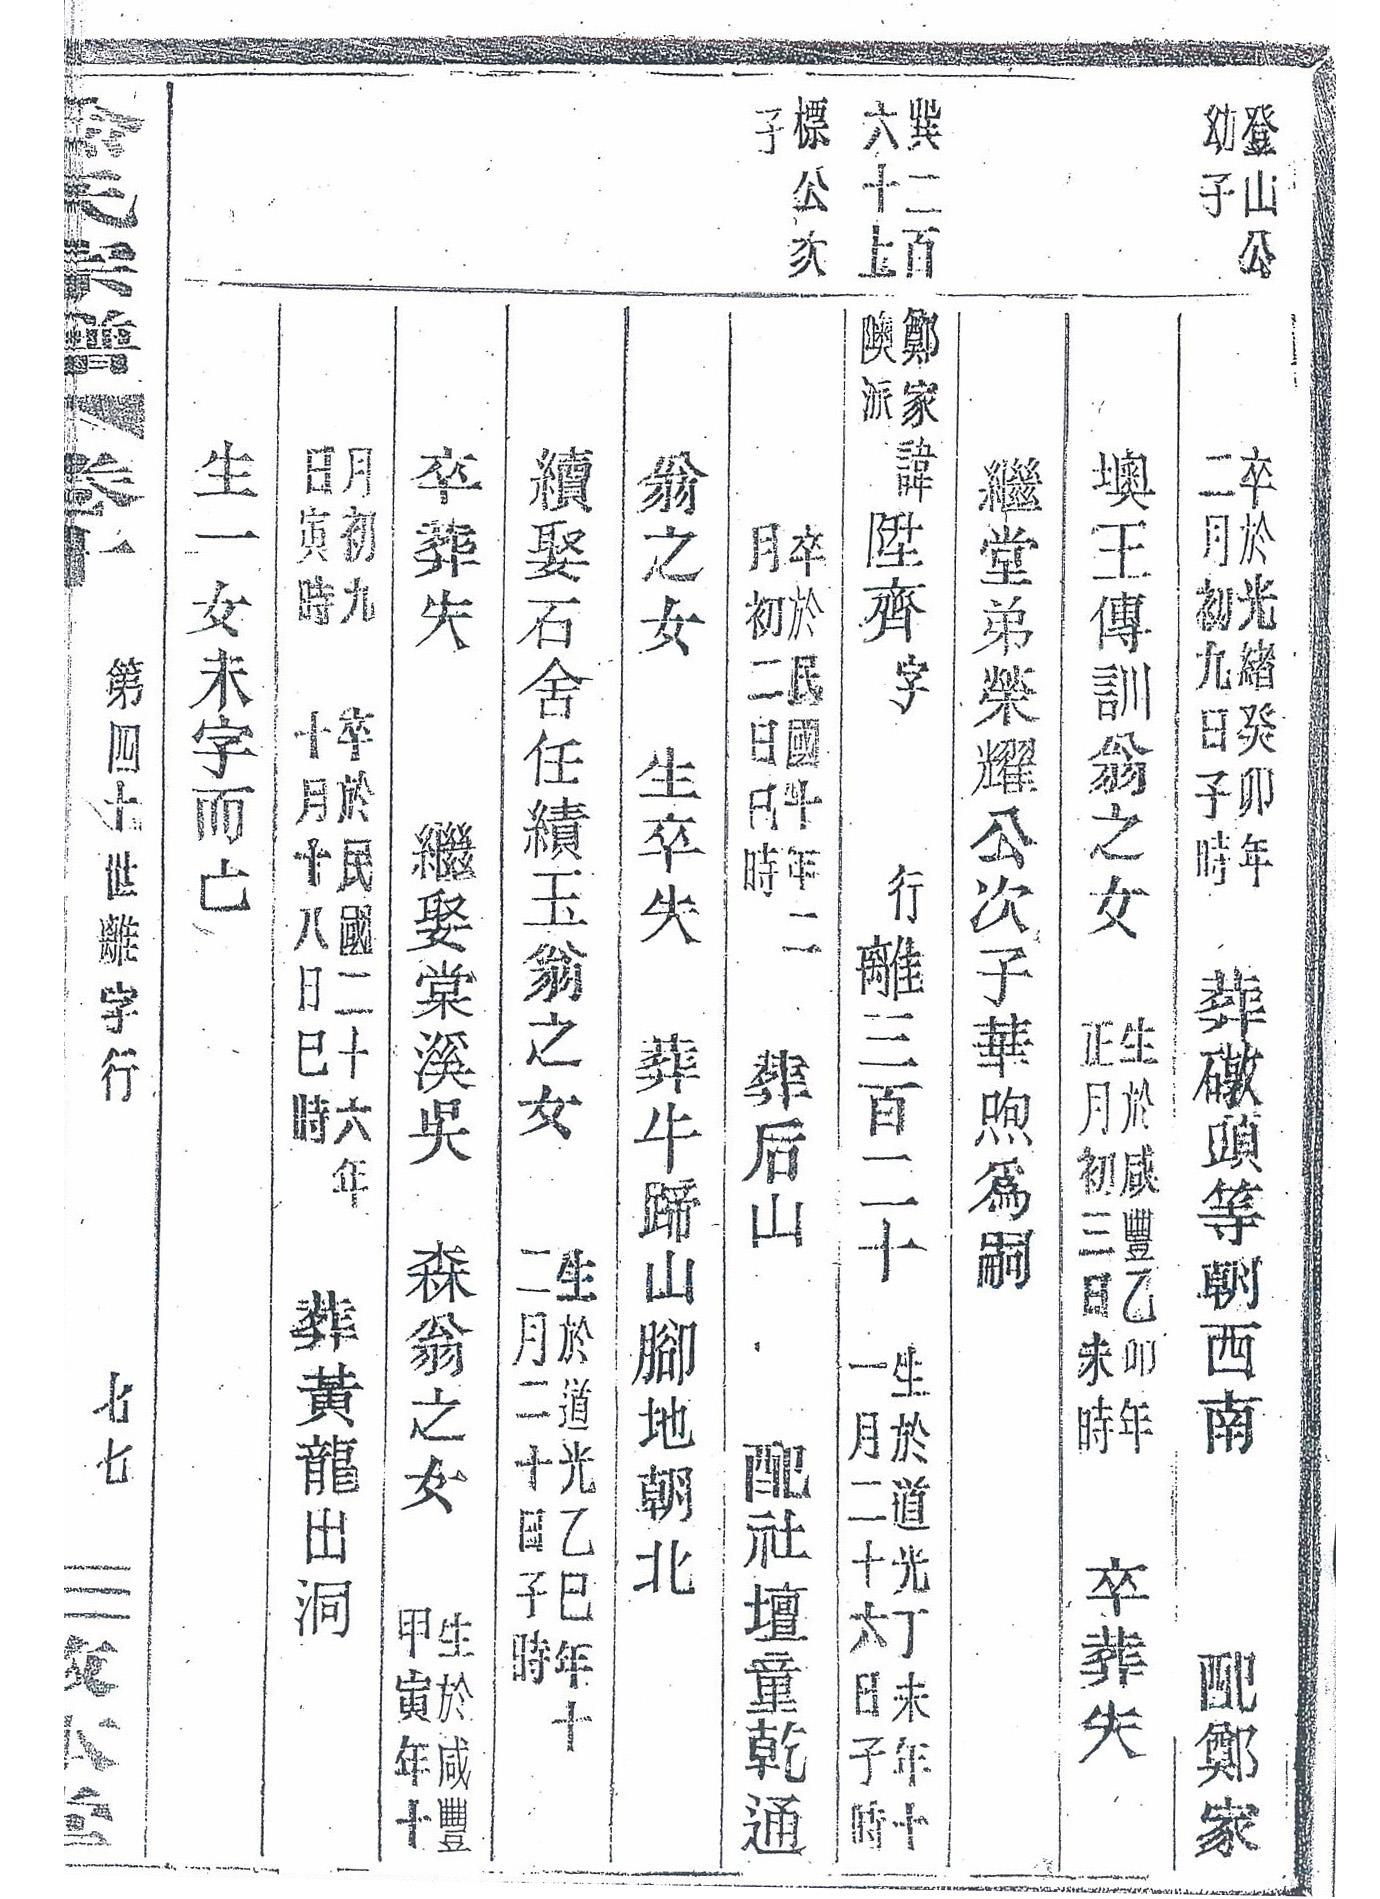 登山公
幼子
卒於光緒癸卯年
二月初九日子時
葬礅頭等朝西南
配鄭家
墺王傳訓翁之女
生於咸豐乙卯年
正月初三日未時
卒葬失
繼堂弟榮耀公次子華煦為嗣
巽二百
六十上
鄭家
隩派
諱陞齊
字
行離三百二十
生於道光丁未年十
一月二十六日子時
標公次
子
卒於民國十年二
月初二日日時
葬后山
配社壇童乾通
翁之女
生卒失
葬牛蹄山腳地朝北
續娶石舍任績玉翁之女
生於道光乙巳年十
二月二十日子時
卒葬失
繼娶棠溪吳
森翁之女
生於咸豐
甲寅年十
月初九
日寅時
卒於民國二十六年
十月十八日巳時
葬黃龍出洞
生一女未字而亡
氏宗譜
卷一
第四十世離字行
七
文公堂